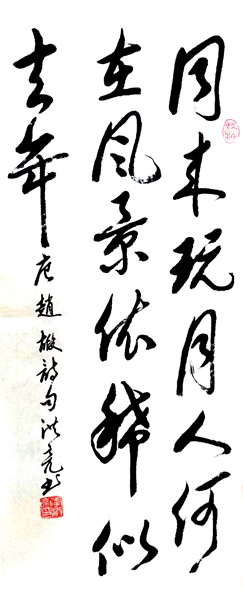 同来玩月人何
在风景依稀似
去年
唐赵嘏诗句洪亮书